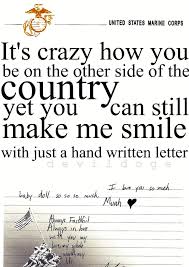 UNITED STATES MARINE CORPS
It's crazy how you
be on the other side of the
country
yet you can still
make me smile
with just a hand written letter
devildoge
I love you so much
baby doll so so so much
Muah ♥
Always Faithful
Always in love
with you my